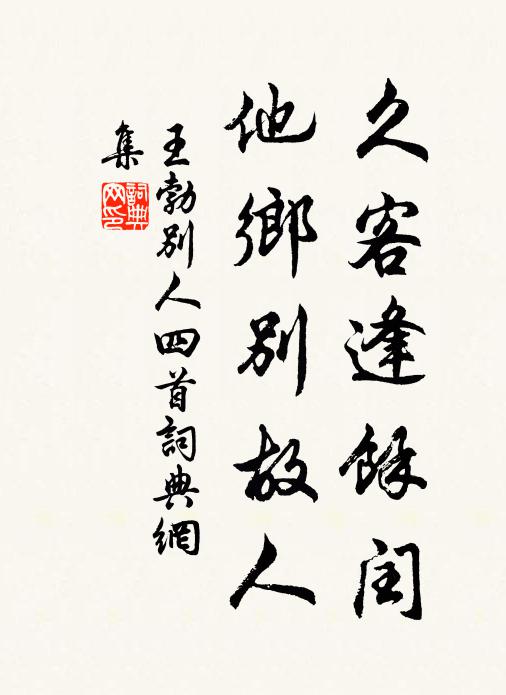 久客逢餘閏
他鄉別故人
王勃別人四首詞典網
集
詞典網印